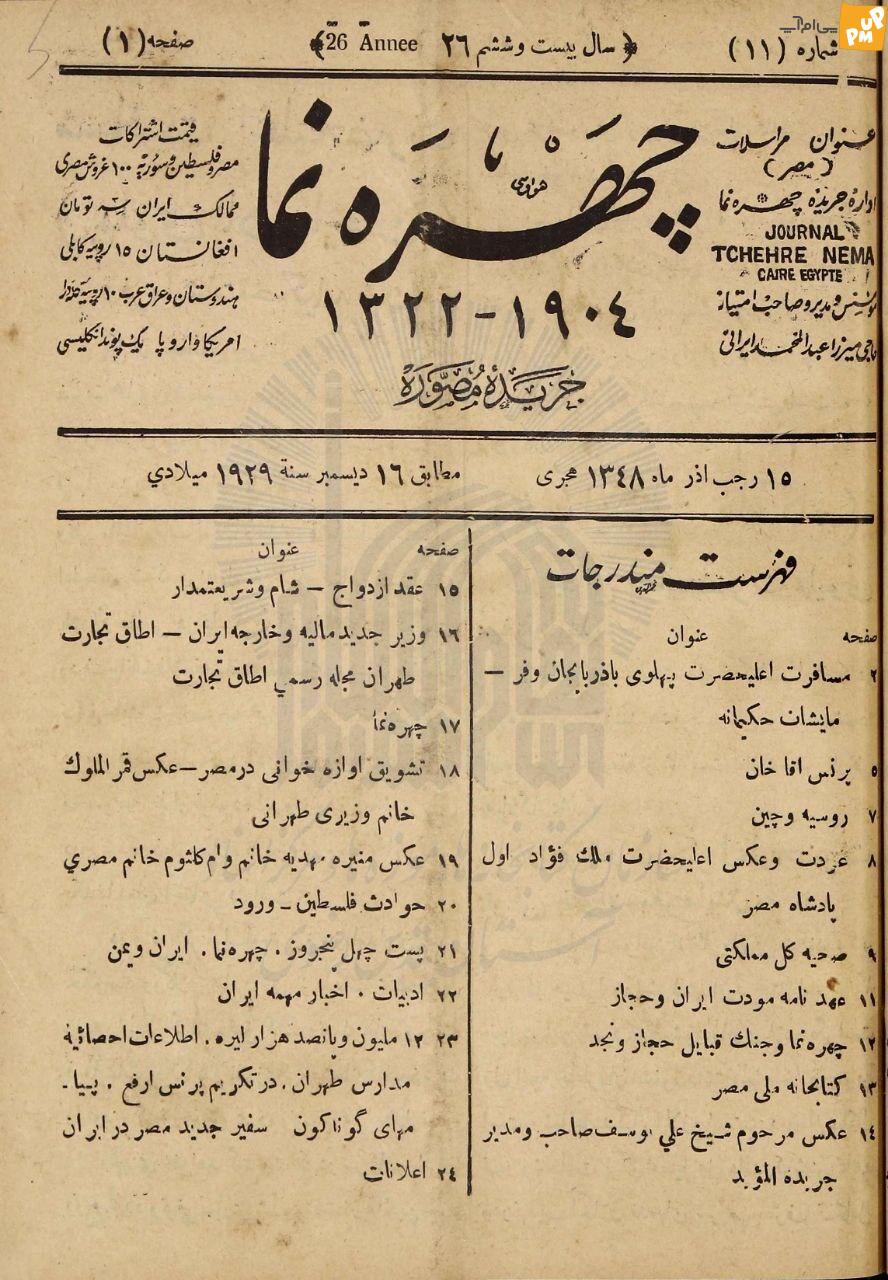 شماره (١١)
﴿ سال بیست و ششم ٢٦ 26 Annee ﴾
صفحه (١)
عنوان مراسلات
(مصر)
اداره جریده چهره نما
JOURNAL
TCHEHRE NEMA
CAIRE EGYPTE
مؤسس و مدیر و صاحب امتیاز
حاجی میرزا عبدالمحمد ایرانی
چهره نما
١٩٠٤ - ١٣٢٢
جریدهٔ مصوّره
قیمت اشتراکات
مصر و فلسطین و سوریه ١٠٠ غروش مصری
ممالک ایران سه تومان
افغانستان ١٥ روپیه کابلی
هندوستان و عراق عرب ١٠ روپیه
امریکا و اروپا یک پوند انگلیسی
١٥ رجب اذر ماه ١٣٤٨ هجری
مطابق ١٦ دیسمبر سنة ١٩٢٩ میلادي
فهرست مندرجات
صفحه عنوان
٢ مسافرت اعلیحضرت پهلوی باذربایجان وفر —
مایشات حکیمانه
٥ پرنس اقا خان
٧ روسیه و چین
٨ عودت وعکس اعلیحضرت ملك فؤاد اول
پادشاه مصر
٩ صحیه کل مملکتی
١١ عهد نامه مودت ایران وحجاز
١٢ چهره نما وجنك قبایل حجاز ونجد
١٣ کتابخانه ملی مصر
١٤ عکس مرحوم شیخ علي یوسف صاحب ومدیر
جریده المؤید
صفحه عنوان
١٥ عقد ازدواج — شام وشریعتمدار
١٦ وزیر جدید مالیه وخارجه ایران — اطاق تجارت
طهران مجله رسمي اطاق تجارت
١٧ چهره نما
١٨ تشویق اوازه خوانی در مصر — عکس قمر الملوك
خانم وزیری طهرانی
١٩ عکس منیره مهدیه خانم وام کلثوم خانم مصري
٢٠ حوادث فلسطین — ورود
٢١ پست چهل پنجروز . چهره نما . ایران ویمن
٢٢ ادبیات . اخبار مهمه ایران
٢٣ ١٢ ملیون وپانصد هزار لیره . اطلاعات احصائیه
مدارس طهران . در تکریم پرنس ارفع . پیا ـ
مهای گوناکون سفیر جدید مصر در ایران
٢٤ اعلانات
پی‌ام‌آپ
UP
PM